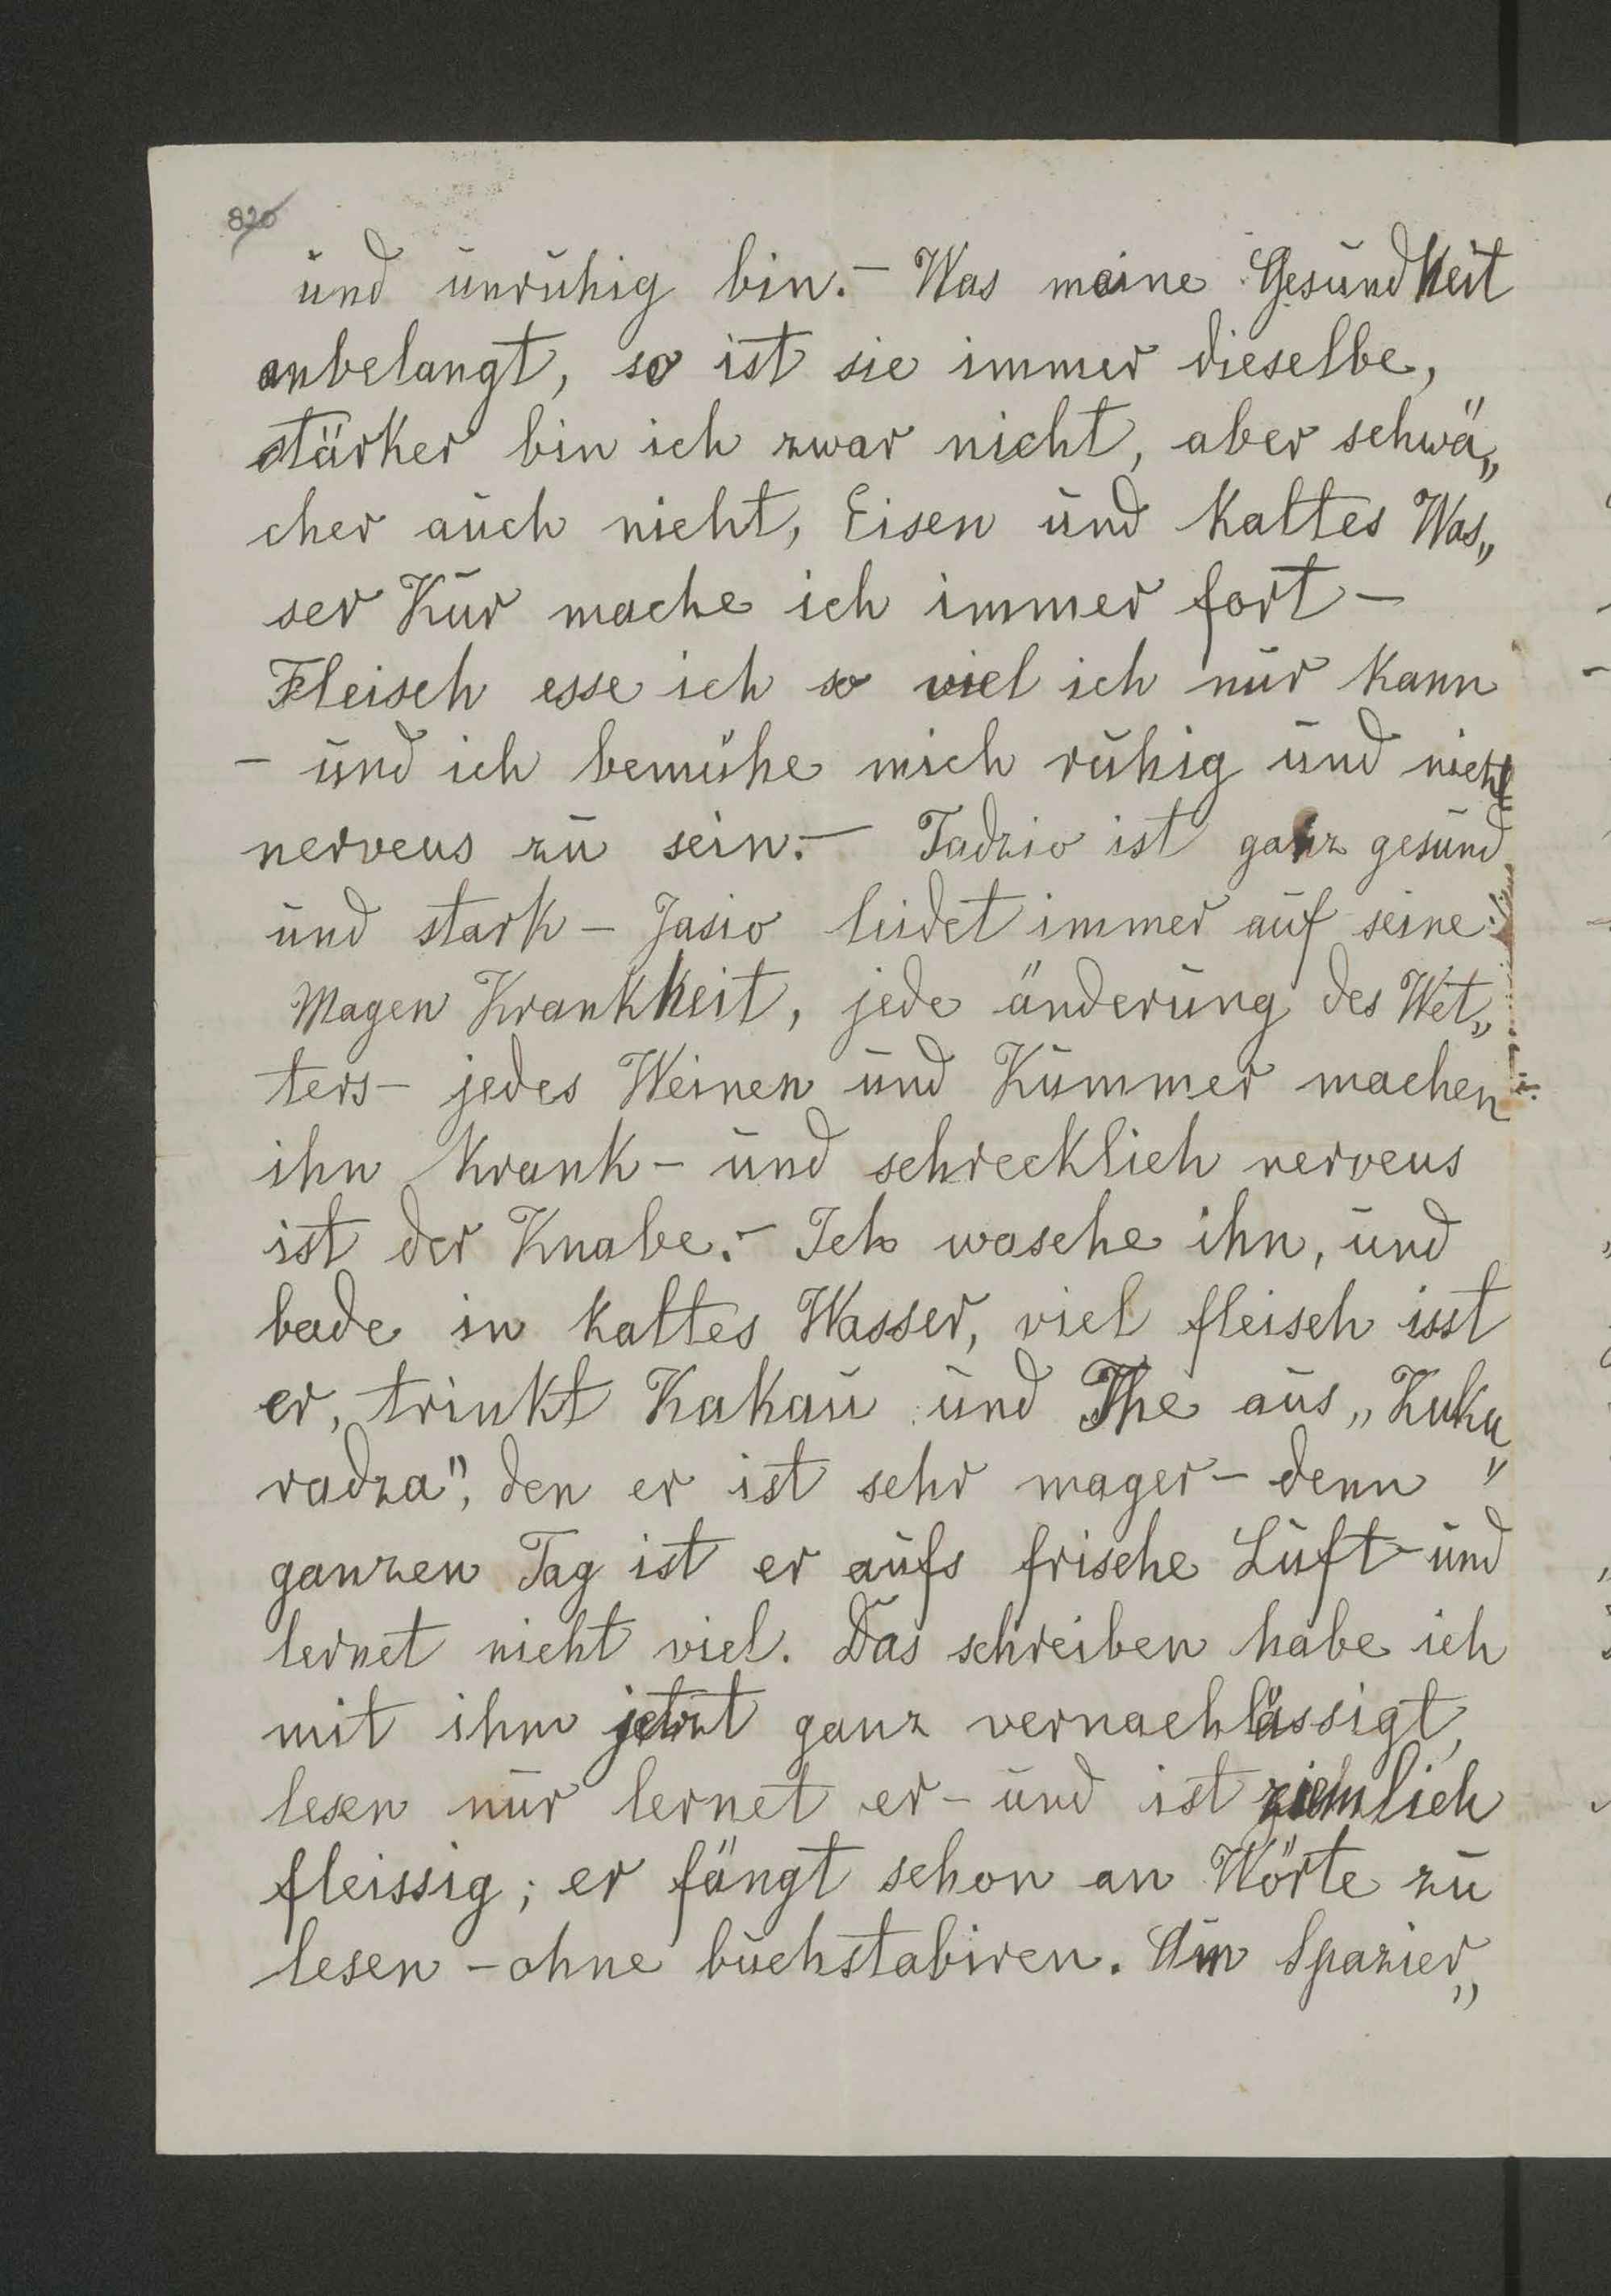 820
und unruhig bin. – Was meine Gesundheit
anbelangt, so ist sie immer dieselbe,
stärker bin ich zwar nicht, aber schwä„
cher auch nicht, Eisen und kaltes Was„
ser Kur mache ich immer fort –
Fleisch esse ich so viel ich nur kann
– und ich bemühe mich ruhig und nicht
nerveus zu sein. – Tadzio ist ganz gesund
und stark – Jasio leidet immer auf seine
Magen Krankheit, jede änderung des Wet„
ters – jedes Weinen und Kummer machen
ihn krank – und schrecklich nerveus
ist der Knabe. – Ich wasche ihn, und
bade in kaltes Wasser, viel fleisch isst
er, trinkt Kakau und The aus „Kuku„
radza", den er ist sehr mager – denn
ganzen Tag ist er aufs frische Luft – und
lernet nicht viel. Das schreiben habe ich
mit ihm jetzt ganz vernachlässigt,
lesen nur lernet er – und ist ziemlich
fleissig; er fängt schon an Wörte zu
lesen – ohne buchstabiren. Am Spazier„